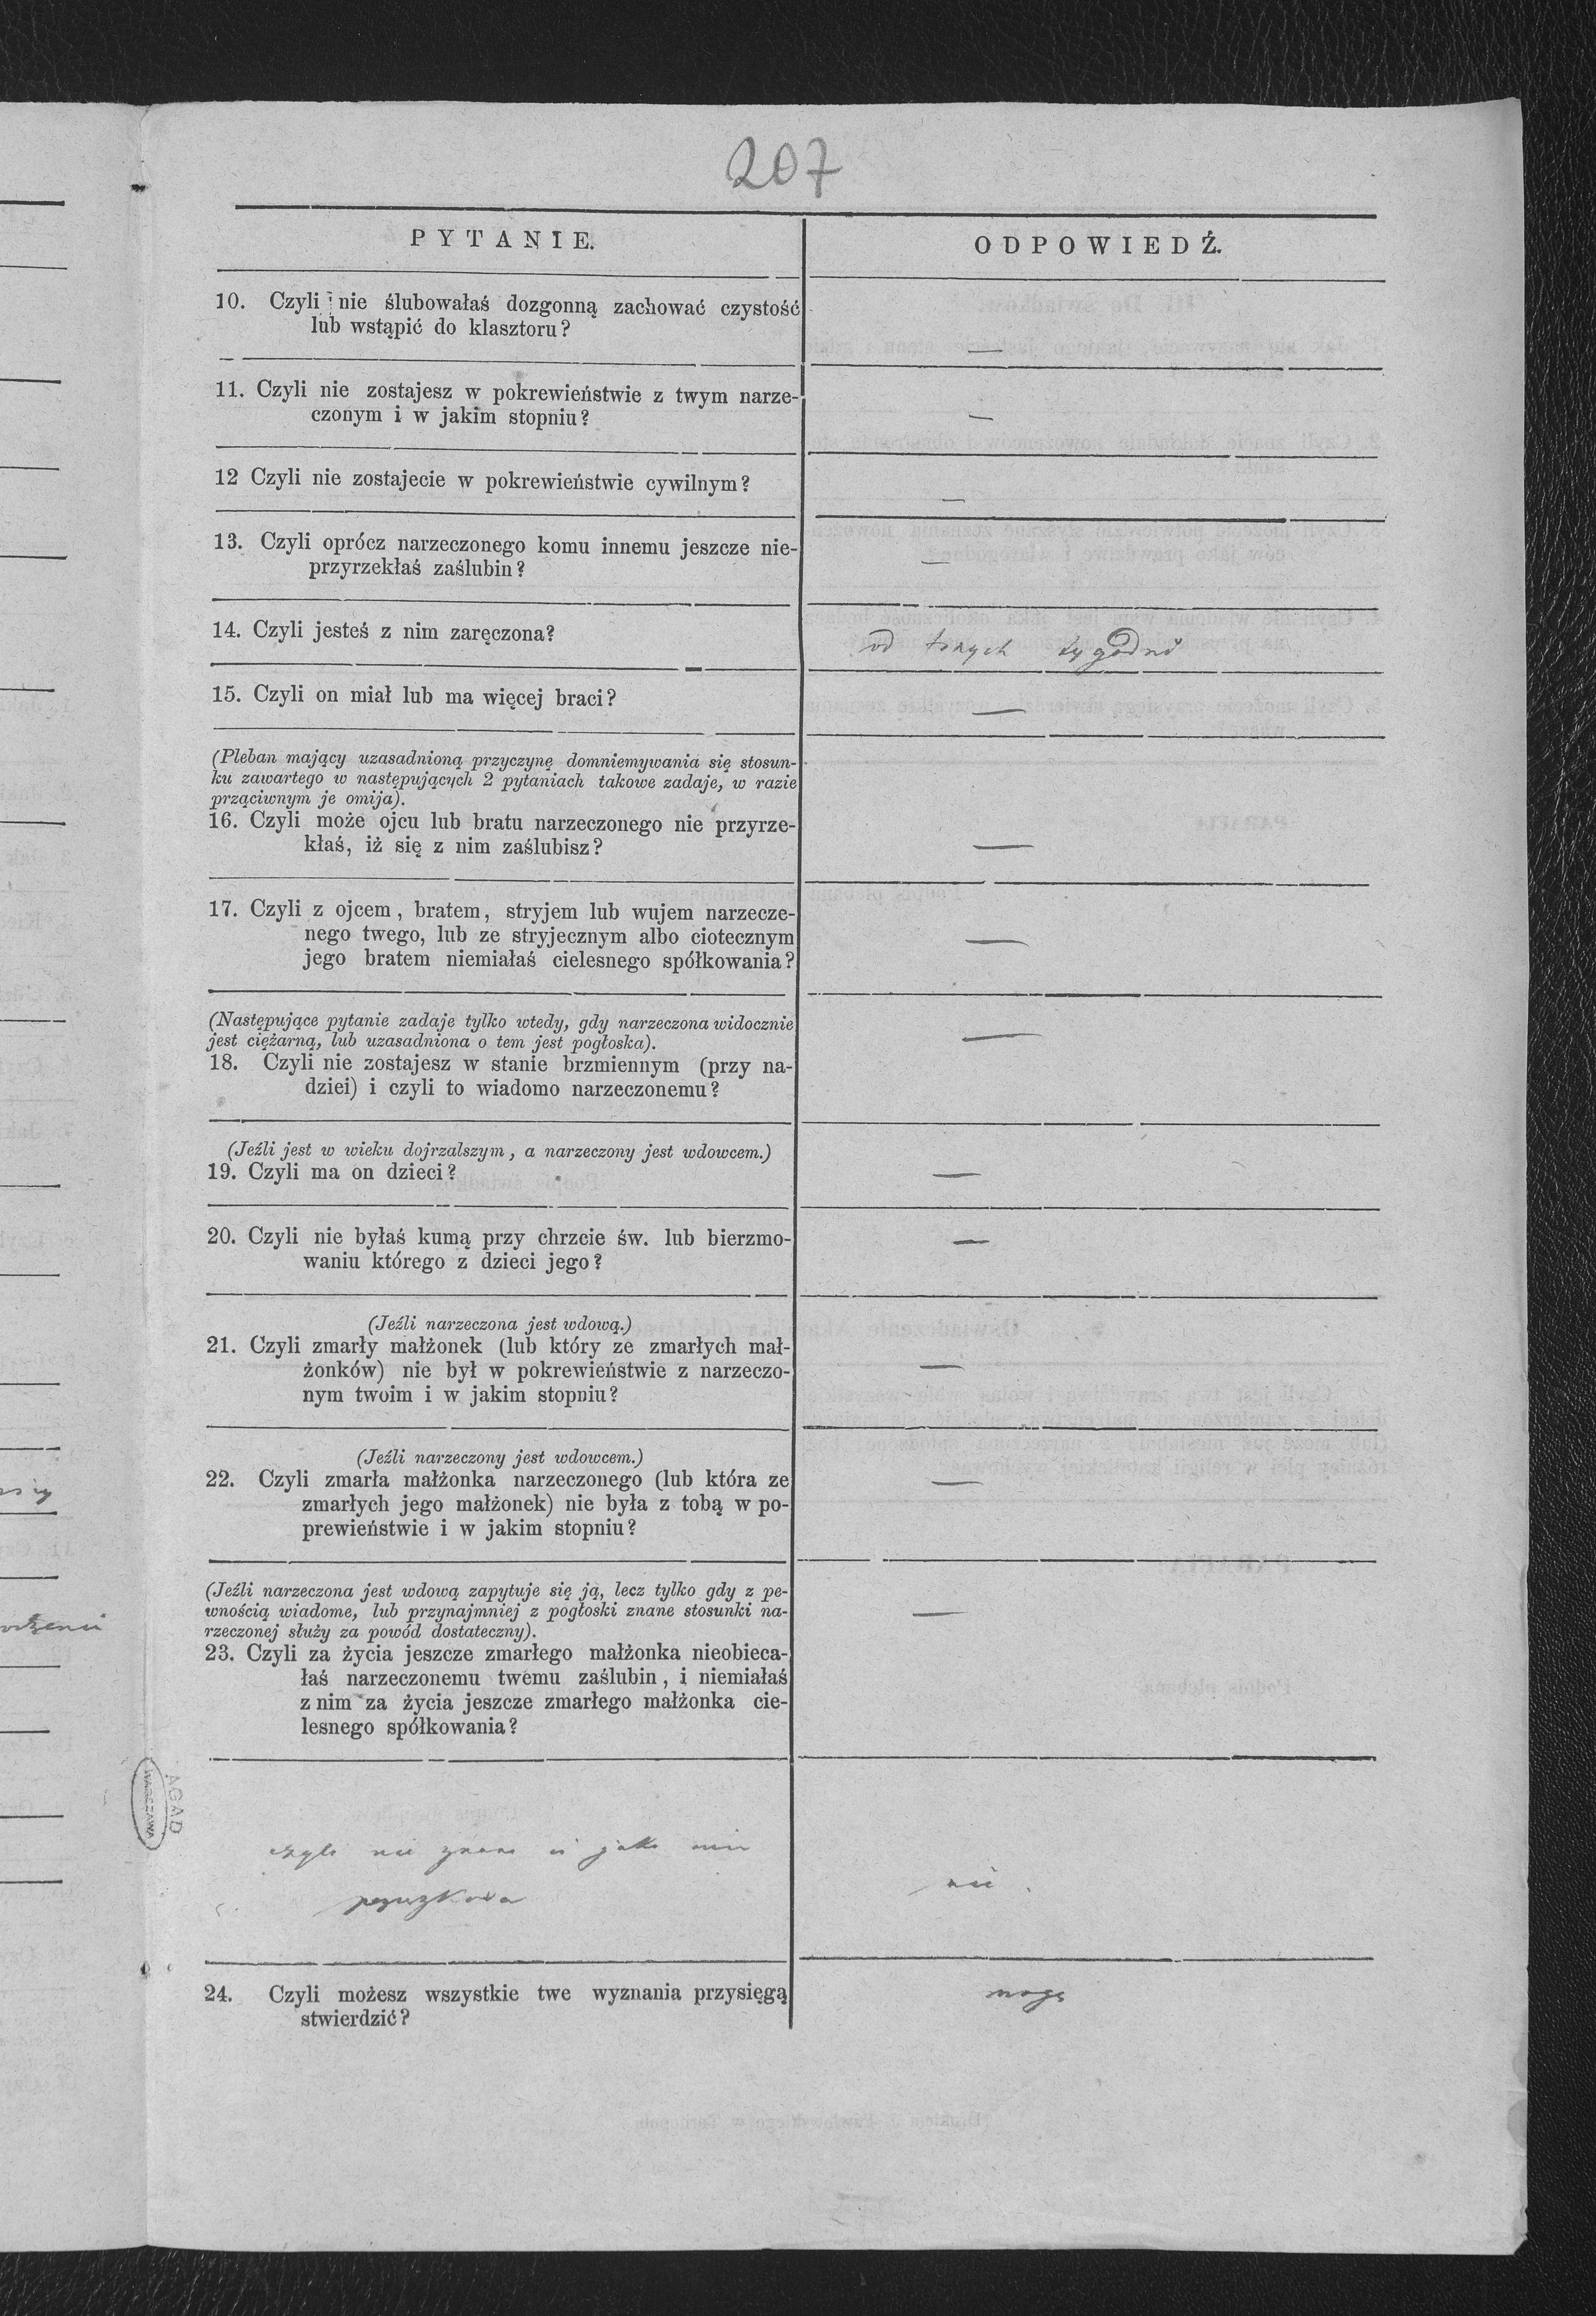 207
PYTANIE.
ODPOWIEDŹ.
10. Czyli nie ślubowałaś dozgonną zachować czystość
lub wstąpić do klasztoru?
—
11. Czyli nie zostajesz w pokrewieństwie z twym narze-
czonym i w jakim stopniu?
—
12 Czyli nie zostajecie w pokrewieństwie cywilnym?
—
13. Czyli oprócz narzeczonego komu innemu jeszcze nie-
przyrzekłaś zaślubin?
—
14. Czyli jesteś z nim zaręczona?
od trzych tygodni
15. Czyli on miał lub ma więcej braci?
—
(Pleban mający uzasadnioną przyczynę domniemywania się stosun-
ku zawartego w następujących 2 pytaniach takowe zadaje, w razie
prząciwnym je omija).
16. Czyli może ojcu lub bratu narzeczonego nie przyrze-
kłaś, iż się z nim zaślubisz?
—
17. Czyli z ojcem, bratem, stryjem lub wujem narzecze-
nego twego, lub ze stryjecznym albo ciotecznym
jego bratem niemiałaś cielesnego spółkowania?
—
(Następujące pytanie zadaje tylko wtedy, gdy narzeczona widocznie
jest ciężarną, lub uzasadniona o tem jest pogłoska).
18. Czyli nie zostajesz w stanie brzmiennym (przy na-
dziei) i czyli to wiadomo narzeczonemu?
—
(Jeźli jest w wieku dojrzalszym, a narzeczony jest wdowcem.)
19. Czyli ma on dzieci?
—
20. Czyli nie byłaś kumą przy chrzcie św. lub bierzmo-
waniu którego z dzieci jego?
—
(Jeźli narzeczona jest wdową.)
21. Czyli zmarły małżonek (lub który ze zmarłych mał-
żonków) nie był w pokrewieństwie z narzeczo-
nym twoim i w jakim stopniu?
—
(Jeźli narzeczony jest wdowcem.)
22. Czyli zmarła małżonka narzeczonego (lub która ze
zmarłych jego małżonek) nie była z tobą w po-
prewieństwie i w jakim stopniu?
—
(Jeźli narzeczona jest wdową zapytuje się ją, lecz tylko gdy z pe-
wnością wiadome, lub przynajmniej z pogłoski znane stosunki na-
rzeczonej służy za powód dostateczny).
23. Czyli za życia jeszcze zmarłego małżonka nieobieca-
łaś narzeczonemu twemu zaślubin, i niemiałaś
z nim za życia jeszcze zmarłego małżonka cie-
lesnego spółkowania?
—
AGAD
WARSZAWA
czyli nie znana ci jaka
nie.
24. Czyli możesz wszystkie twe wyznania przysięgą
stwierdzić?
mogę